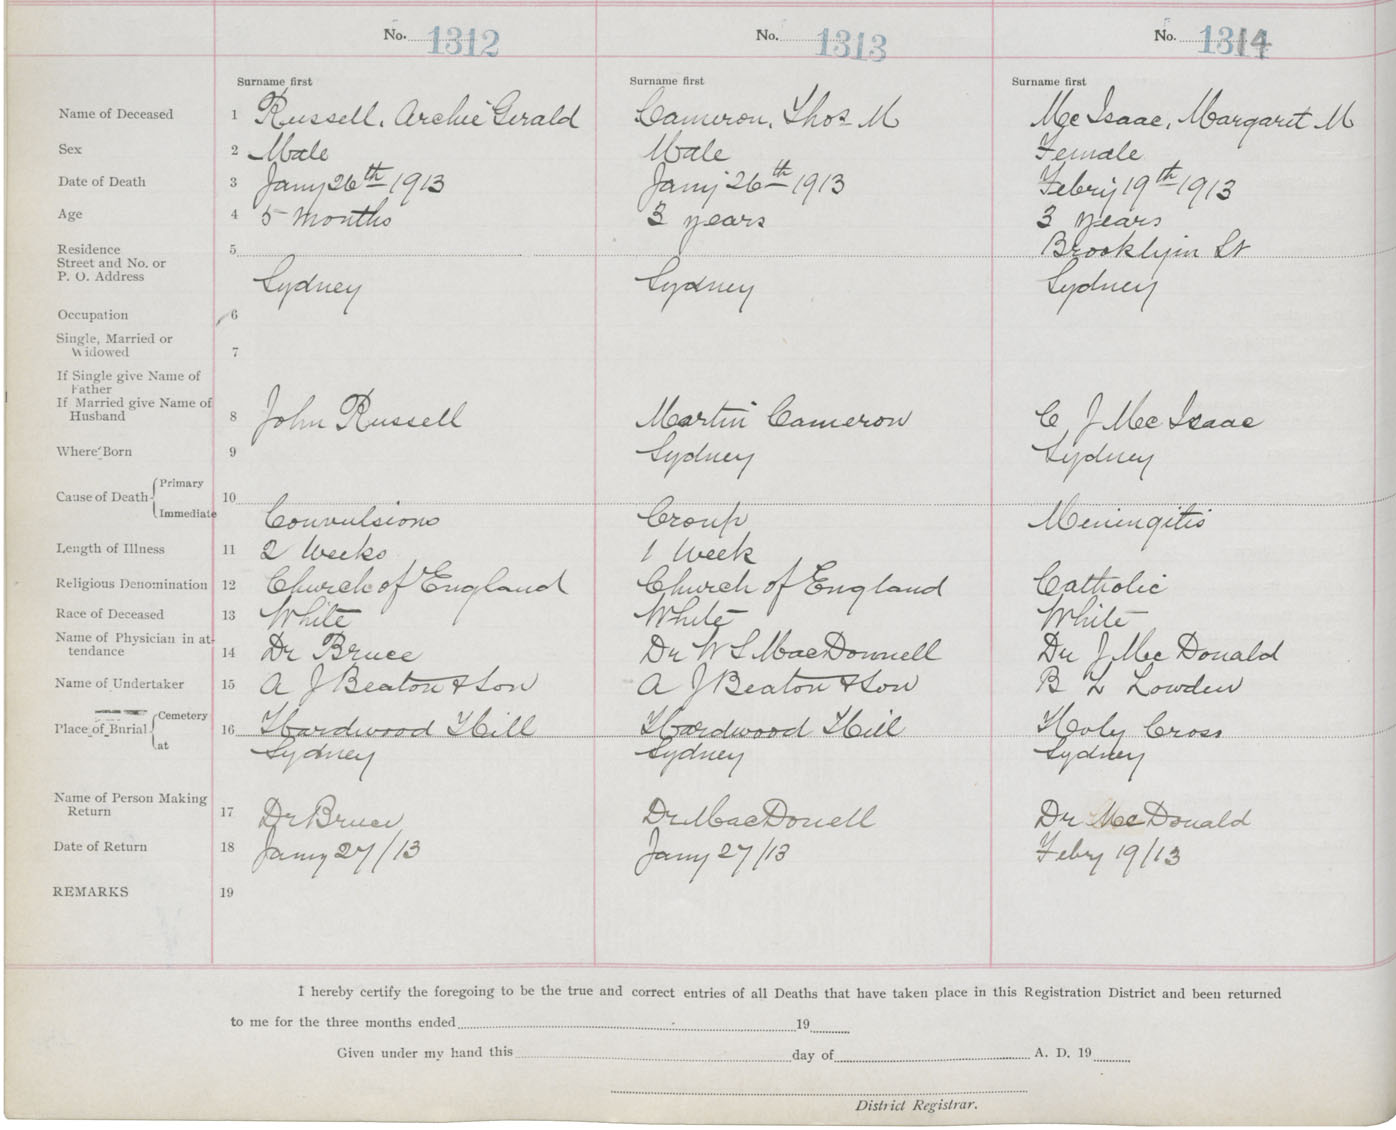 No. 1312 No. 1313 No. 1314
Surname first Surname first Surname first
Name of Deceased 1 Russell, Archie Gerald Cameron, Thos M McIsaac, Margaret M
Sex 2 Male Male Female
Date of Death 3 Jany 26th 1913 Jany 26th 1913 Febry 19th 1913
Age 4 5 months 3 years 3 years
Residence 5 Brooklyn St
Street and No. or
P. O. Address Sydney Sydney Sydney
Occupation 6
Single, Married or
Widowed 7
If Single give Name of
Father
If Married give Name of
Husband 8 John Russell Martin Cameron C J McIsaac
Where Born 9 Sydney Sydney
Cause of Death Primary 10
Immediate Convulsions Croup Meningitis
Length of Illness 11 2 Weeks 1 Week
Religious Denomination 12 Church of England Church of England Catholic
Race of Deceased 13 White White White
Name of Physician in at-
tendance 14 Dr Bruce Dr W S MacDonnell Dr J McDonald
Name of Undertaker 15 A J Beaton & Son A J Beaton & Son B L Lowden
Place of Burial Cemetery 16 Hardwood Hill Hardwood Hill Holy Cross
at Sydney Sydney Sydney
Name of Person Making
Return 17 Dr Bruce Dr MacDonell Dr McDonald
Date of Return 18 Jany 27/13 Jany 27/13 Febry 19/13
REMARKS 19
I hereby certify the foregoing to be the true and correct entries of all Deaths that have taken place in this Registration District and been returned
to me for the three months ended 19
Given under my hand this day of A. D. 19
District Registrar.